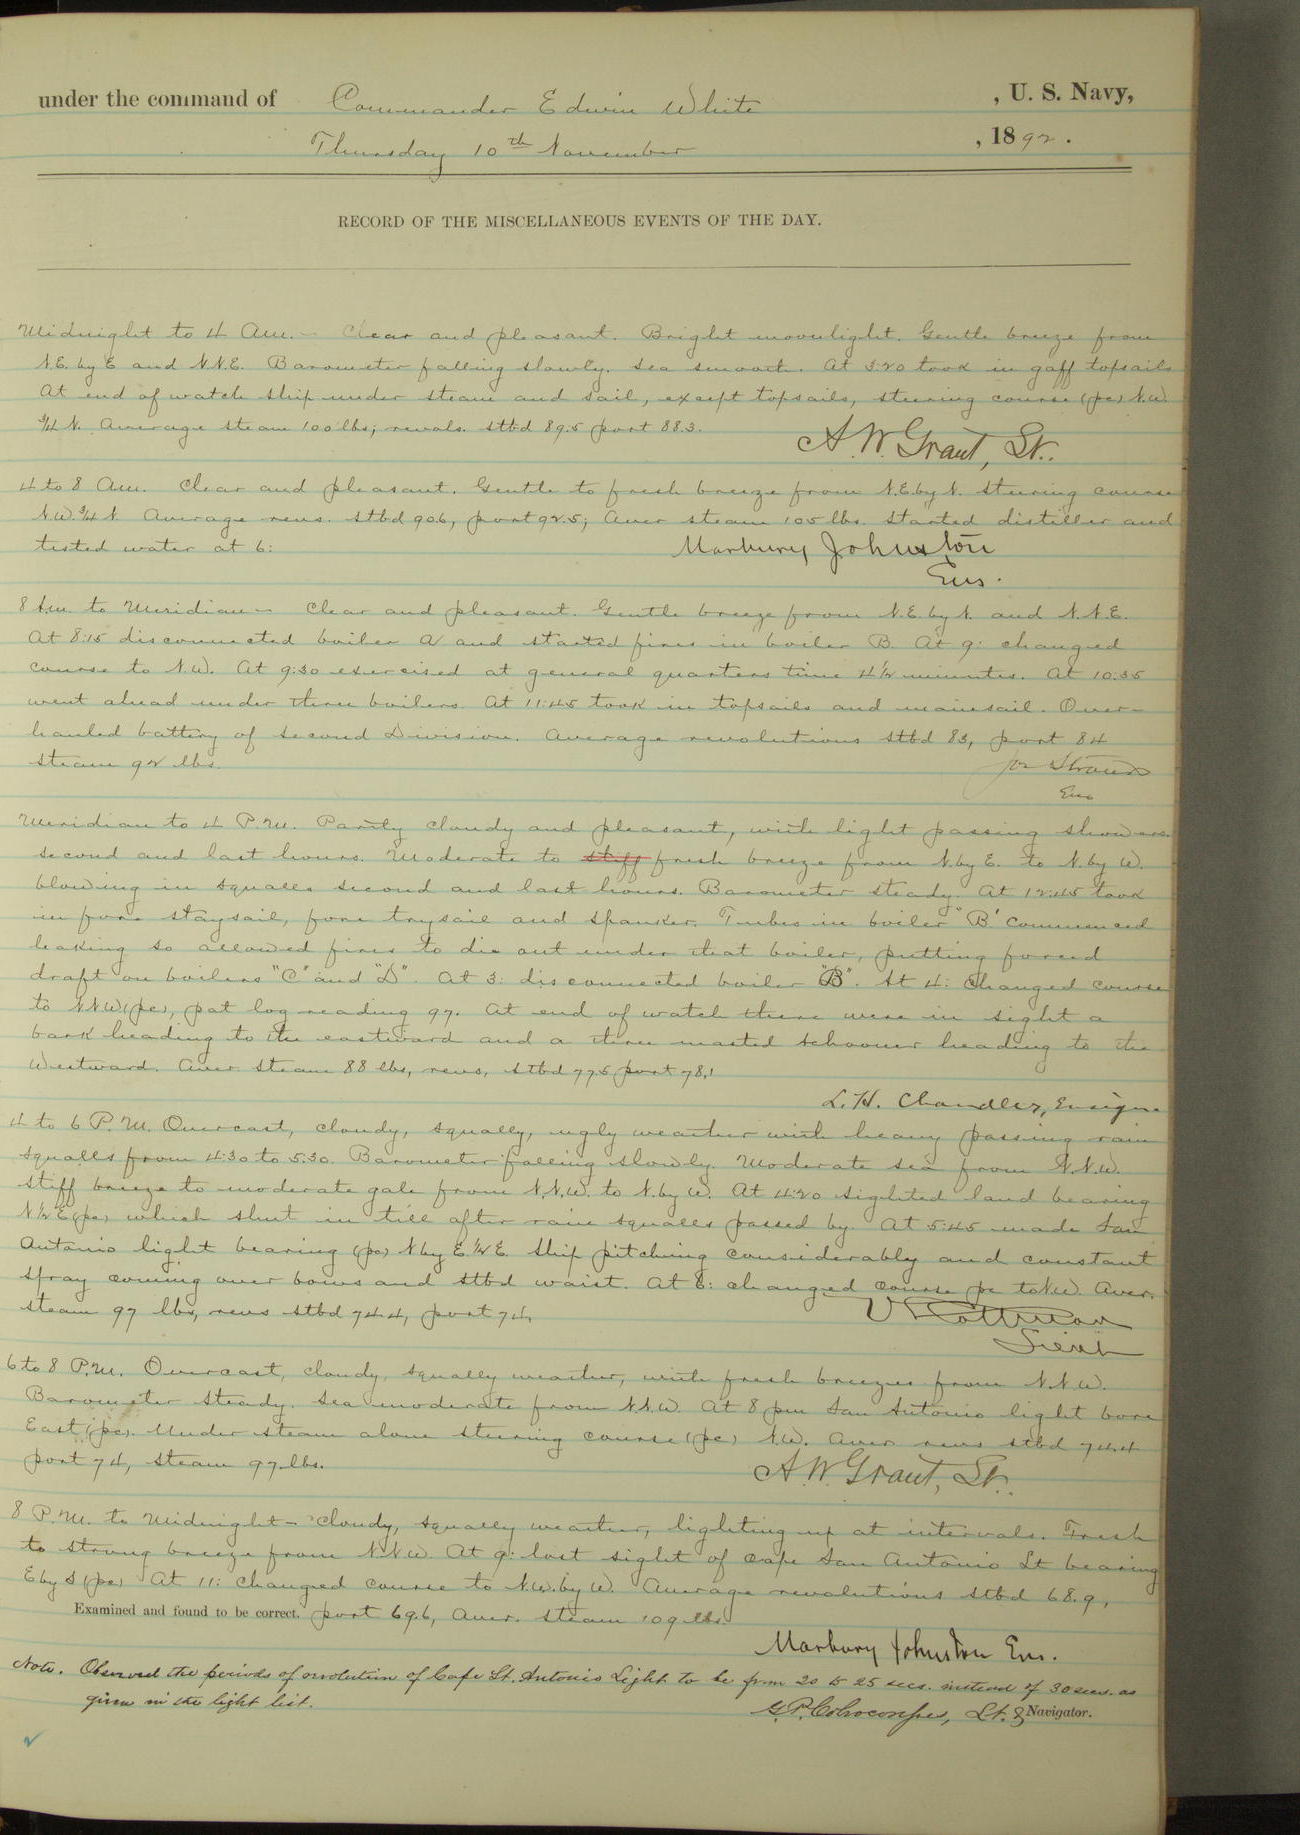 under the command of Commander Edwin White , U. S. Navy,
Thursday 10th November , 1892.
RECORD OF THE MISCELLANEOUS EVENTS OF THE DAY.
Midnight to 4 Am. – Clear and pleasant. Bright moonlight. Gentle breeze from
N.E. by E and N.N.E. Barometer falling slowly. Sea smooth. At 3:20 took in gaff topsails
At end of watch ship under steam and sail, except topsails, steering course (pc) N.W.
3/4 N. Average steam 100 lbs; revols. stbd 89.5 port 88.3.
A. W. Grant, Lt.
4 to 8 Am. Clear and pleasant. Gentle to fresh breeze from N.E. by N. Steering course
N.W. 3/4 N. Average revs. stbd 90.6, port 92.5; Aver steam 105 lbs. Started distiller and
tested water at 6:
Marbury Johnston
Ens.
8 A.m. to Meridian – Clear and pleasant. Gentle breeze from N.E. by N. and N.N.E.
At 8:15 disconnected boiler A and started fires in boiler B. At 9: changed
course to N.W. At 9:30 exercised at general quarters time 4 1/2 minutes. At 10.35
went ahead under three boilers. At 11:45 took in topsails and mainsail. Over-
hauled battery of Second Division. Average revolutions stbd 83, port 84
steam 92 lbs.
Jos Strauss
Ens
Meridian to 4 P.M. Partly cloudy and pleasant, with light passing showers
second and last hours. Moderate to stiff fresh breeze from N. by E. to N. by W.
blowing in squalls second and last hours. Barometer steady. At 12:45 took
in fore staysail, fore trysail and spanker. Tubes in boiler "B" commenced
leaking so allowed fires to die out under that boiler, putting forced
draft on boilers "C" and "D". At 3: disconnected boiler "B". At 4: changed course
to NNW (pc), pat log reading 97. At end of watch there were in sight a
bark heading to the eastward and a three masted schooner heading to the
Westward. Aver steam 88 lbs, revs, stbd 77.5 port 78.1
L. H. Chandler, Ensign
4 to 6 P.M. Overcast, cloudy, squally, ugly weather with heavy passing rain
squalls from 4:30 to 5.30. Barometer falling slowly. Moderate sea from N.N.W.
Stiff breeze to moderate gale from N.N.W. to N. by W. At 4:20 sighted land bearing
N 1/2 E (pc) which shut in till after rain squalls passed by. At 5:45 made San
Antonio light bearing (pc) N by E 1/2 E. Ship pitching considerably and constant
spray coming over bows and stbd waist. At 6: changed course pc to N.W. Aver.
steam 97 lbs, revs stbd 74.4, port 74,
Lieut
6 to 8 P.M. Overcast, cloudy, squally weather, with fresh breezes from N.N.W.
Barometer steady. Sea moderate from N.N.W. At 8 pm San Antonio light bore
East (pc). Under steam alone steering course (pc) N.W. Aver revs stbd 74.4
port 74, steam 97 lbs.
A. W. Grant, Lt.
8 P.M. to Midnight – Cloudy, squally weather, lighting up at intervals. Fresh
to strong breeze from N.N.W. At 9: lost sight of Cape San Antonio Lt bearing
E by S (pc) At 11: changed course to N.W. by W. Average revolutions stbd 68.9,
Examined and found to be correct. port 69.6, Aver. steam 109 lbs.
Marbury Johnston Ens.
Note. Observed the periods of revolution of Cape St. Antonio Light to be from 20 to 25 secs. instead of 30 secs. as
given in the light list.
G. P. Colvocoresses, Lt. & Navigator.